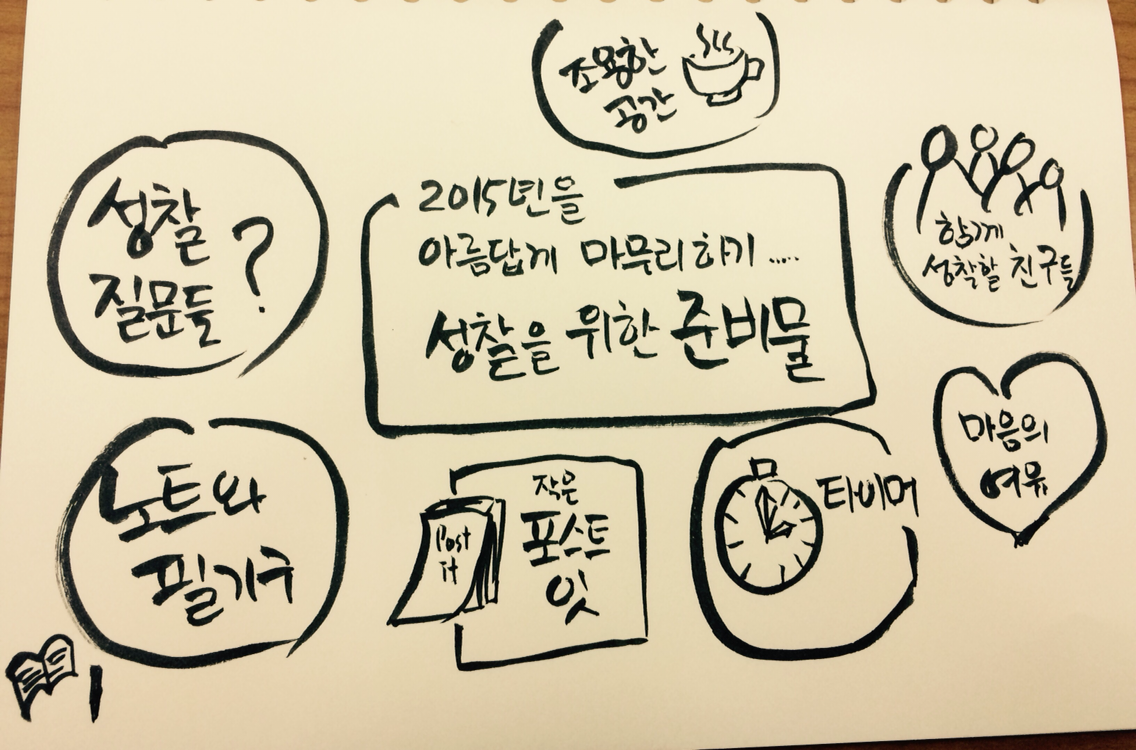 조용한
공간
2015년을
아름답게 마무리하기 .....
성찰을 위한 준비물
성찰
질문들 ?
함께
성찰할 친구들
마음의
여유
노트와
필기구
Post
it
작은
포스트
잇
타이머